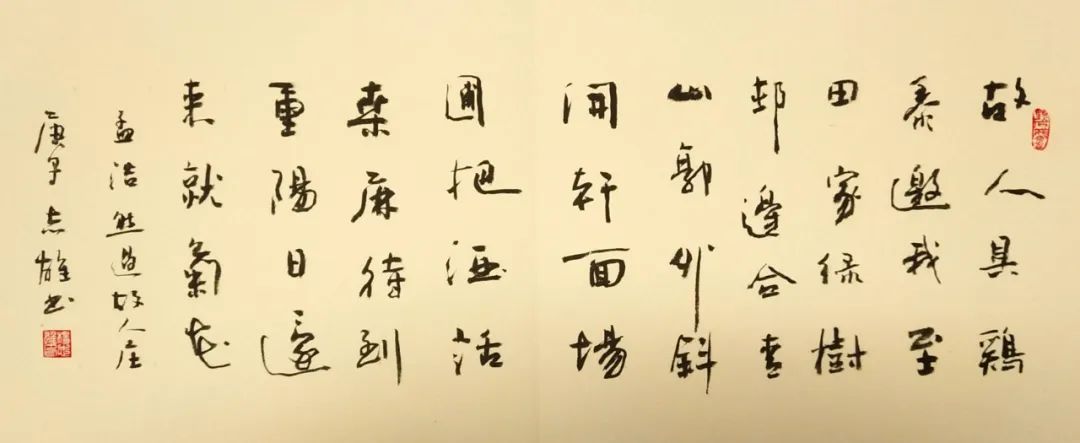 故人具鷄
黍邀我至
田家绿樹
邨邊合青
山郭外斜
開軒面場
圃把酒話
桑麻待到
重陽日還
来就菊花
孟浩然過故人庄
庚子志雄书